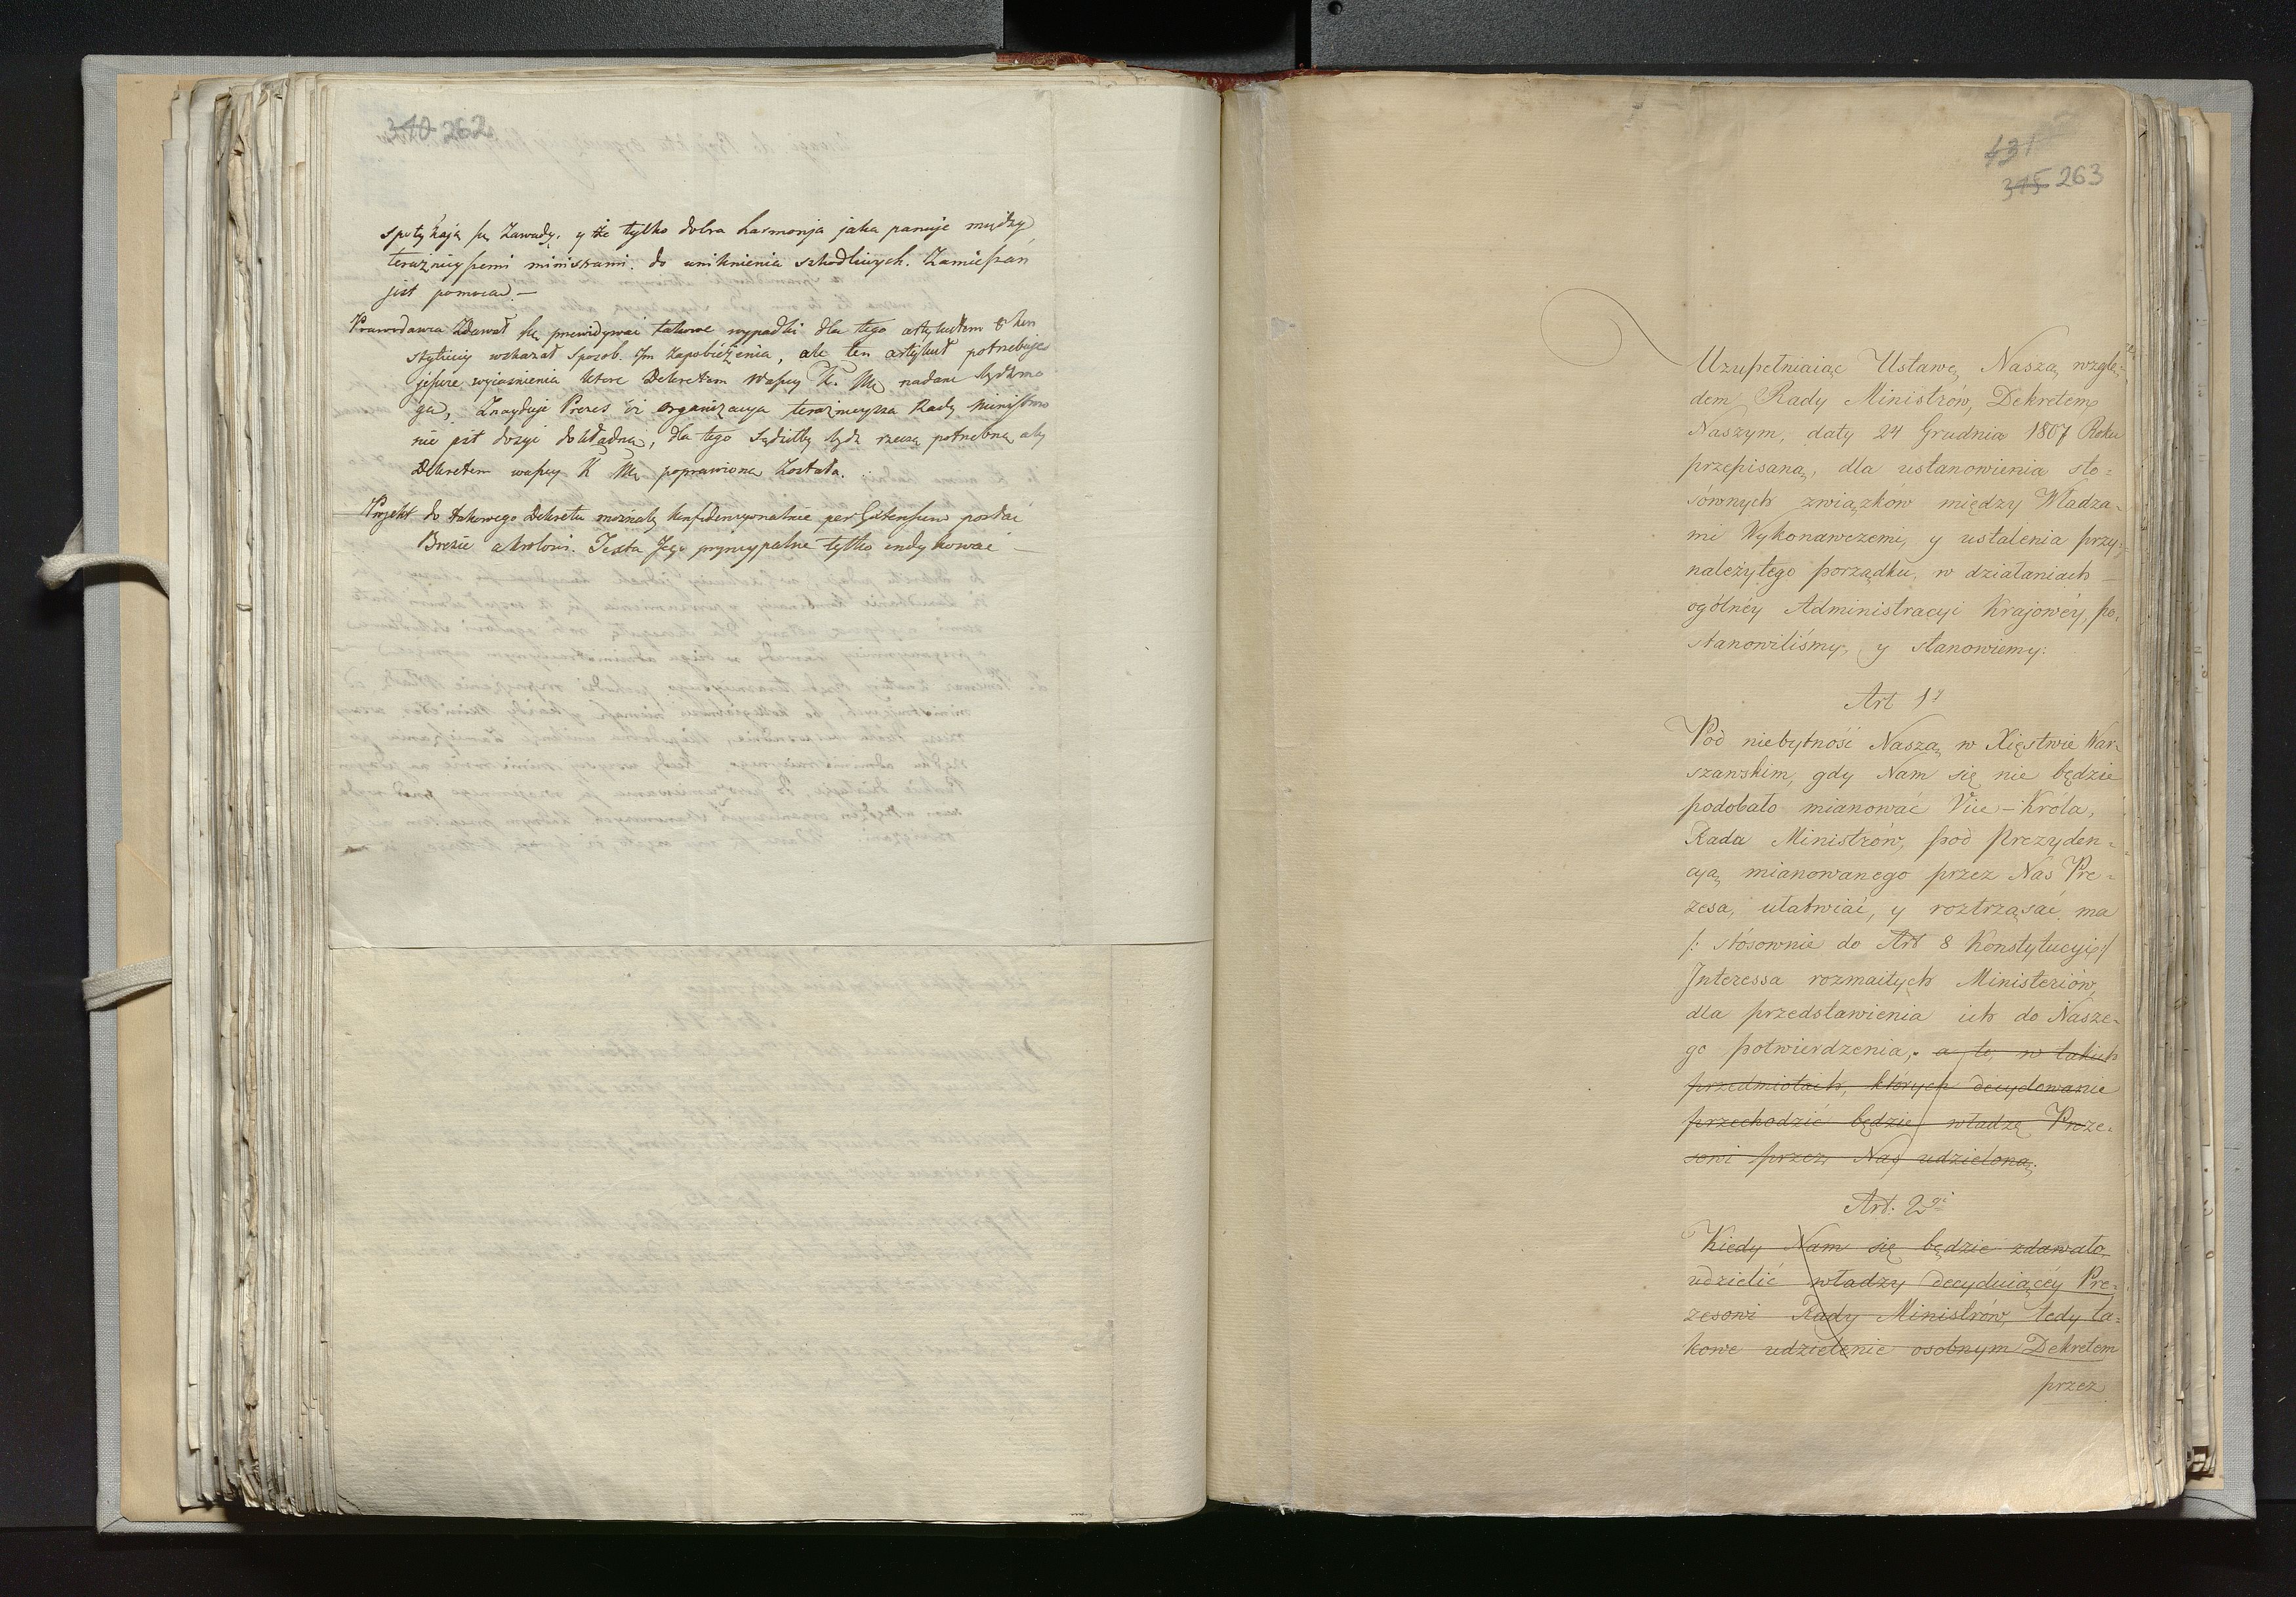 340 262
spotykaią się Zawady. y że tylko dobra harmonja jaka panuje między
teraznieyszemi ministrami. do uniknienia szkodliwych. Zamieszań
jest pomocą —
Prawodawca Zdawał się przewidywać takowe wypadki dla tego artykułem 8 kon
stytucyi wskazał sposob. im zapobieżenia, ale ten artykuł potrzebuje
jeszcze wyiaśnienia ktore Dekretem Waszey K. Mci nadane być mo
gą, Znayduje Prezes iż organizacya teraznieysza Rady Ministrow
nie jest dosyć dokładną, dla tego sądziłby być rzeczą potrzebną aby
Dekretem waszey K Mci poprawiona Została.
Projekt do takowego Dekretu możnaby konfidencyonalnie per Extensum posłać
Brezie a krolowi. Jego pryncypalne tylko indykować —
431
315 263
Uzupełniaiąc Ustawę Naszą wzglę-
dem Rady Ministrów, Dekretem
Naszym, daty 24 Grudnia 1807 Roku
przepisaną, dla ustanowienia sto=
sównych związków między Władza-
mi Wykonawczemi, y ustalenia przy-
należytego porządku, w działaniach —
ogólnéy Administracyi Krajowéy, po-
stanowiliśmy, y stanowiemy:
Art 1y
Pod niebytność Naszą w Xięstwie War-
szawskim, gdy Nam się nie będzie
podobało mianować Vice-Króla,
Rada Ministrów, pod Prezyden-
cyą mianowanego przez Nas Pre-
zesa, ułatwiać, y roztrząsać ma
/: stósownie do Art 8 Konstytucyi :/
Interessa rozmaitych Ministeriów,
dla przedstawienia ich do Nasze-
go potwierdzenia, a to, w takich
przedmiotach, których decydowanie
przechodzić będzie władzę Preze-
sowi przez Nas udzieloną.
Art: 2gi
Kiedy Nam się będzie zdawało,
udzielić władzy decyduiącéy Pre-
zesowi Rady Ministrów, tedy ta-
kowe udzielenie osobnym Dekretem
przez